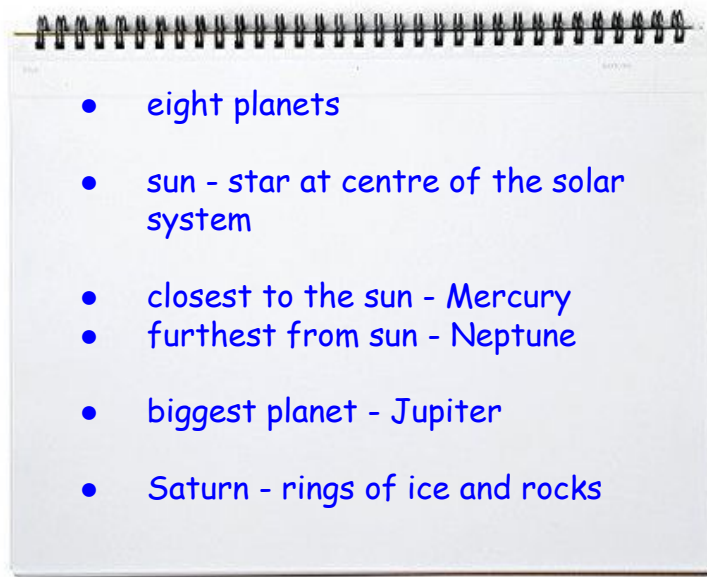 ● eight planets
● sun - star at centre of the solar
system
● closest to the sun - Mercury
● furthest from sun - Neptune
● biggest planet - Jupiter
● Saturn - rings of ice and rocks